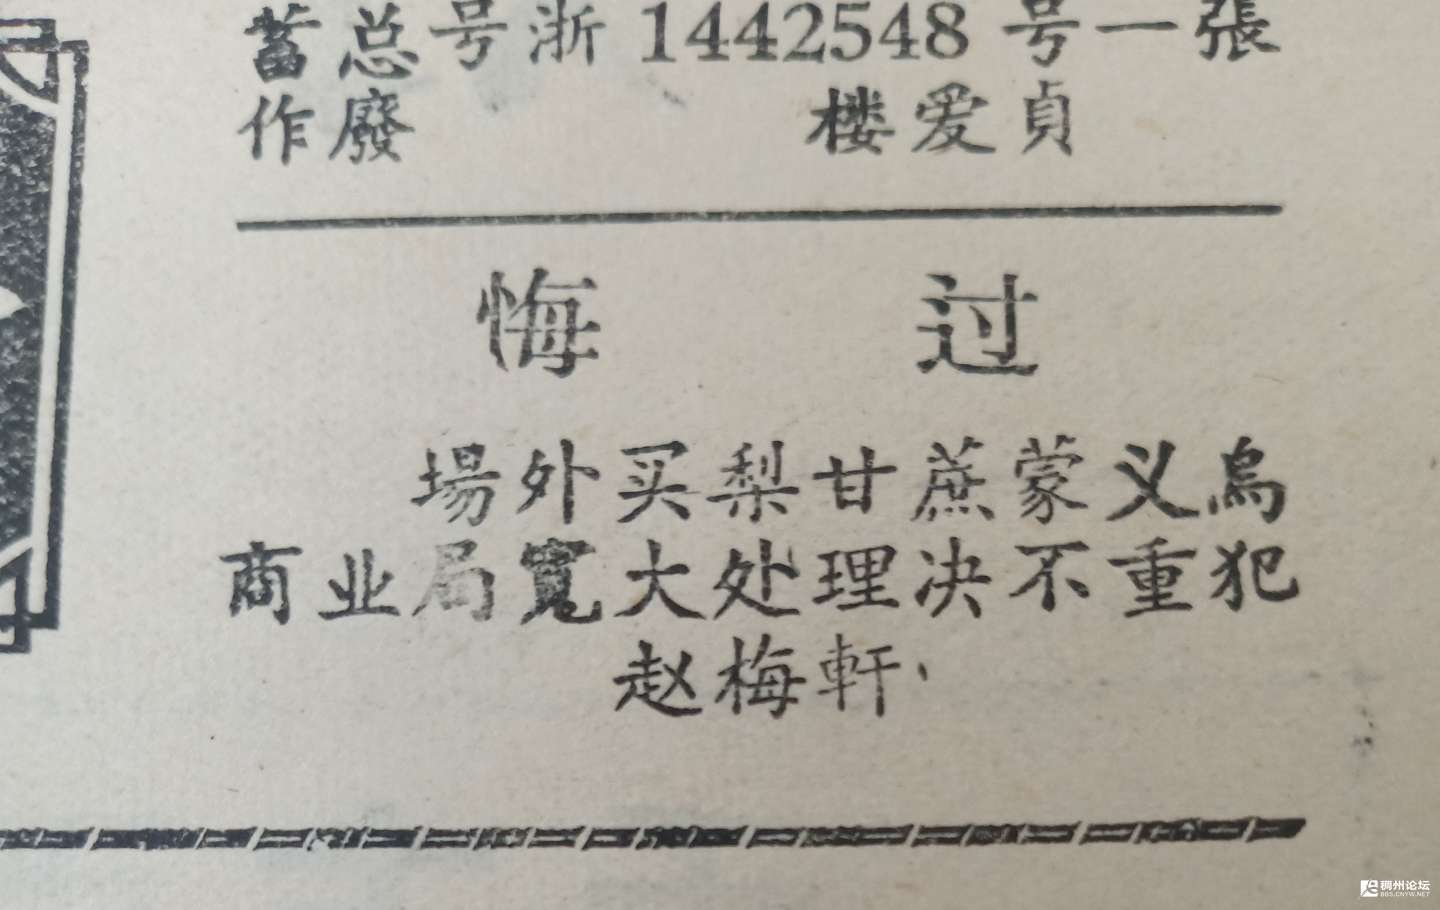 蓄总号浙1442548号一張
作廢 楼爱貞
悔过
場外买梨甘蔗蒙义烏
商业局寬大处理决不重犯
赵梅軒
稠州论坛
BBS.CNYW.NET